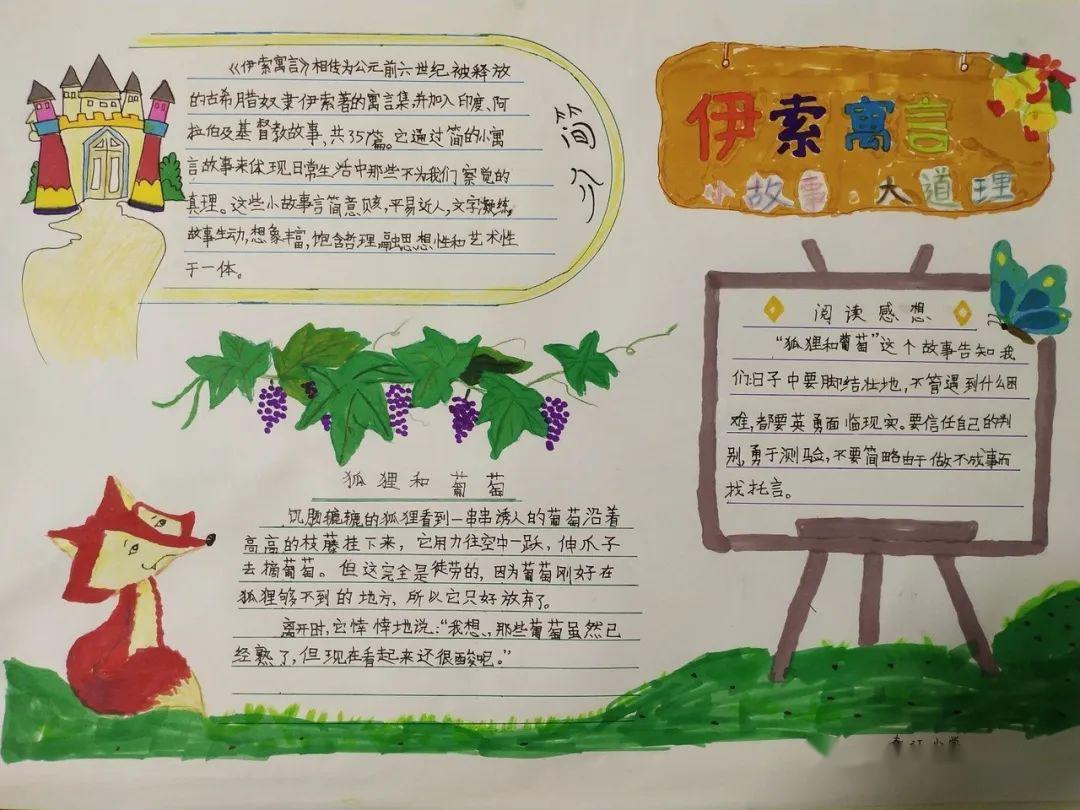 伊索寓言
小故事·大道理
简介
《伊索寓言》相传为公元前六世纪被释放
的古希腊奴隶伊索著的寓言集,并加入印度、阿
拉伯及基督教故事,共357篇。它通过简的小寓
言故事来体现日常生活中那些不为我们察觉的
真理。这些小故事言简意赅,平易近人,文字凝练,
故事生动,想象丰富,饱含哲理,融思想性和艺术性
于一体。
阅读感想
“狐狸和葡萄”这个故事告知我
们:日子中要脚结壮地,不管遇到什么困
难,都要英勇面临现实。要信任自己的判
别,勇于测验,不要简略由于做不成事而
找托言。
狐狸和葡萄
饥肠辘辘的狐狸看到一串串诱人的葡萄沿着
高高的枝藤挂下来,它用力往空中一跃,伸爪子
去摘葡萄。但这完全是徒劳的,因为葡萄刚好在
狐狸够不到的地方,所以它只好放弃了。
离开时,它悻悻地说:“我想,那些葡萄虽然已
经熟了,但现在看起来还很酸呢。”
江小学